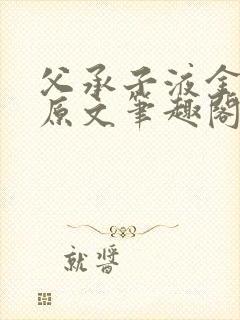 父承子液全
原文笔趣阁
就酱